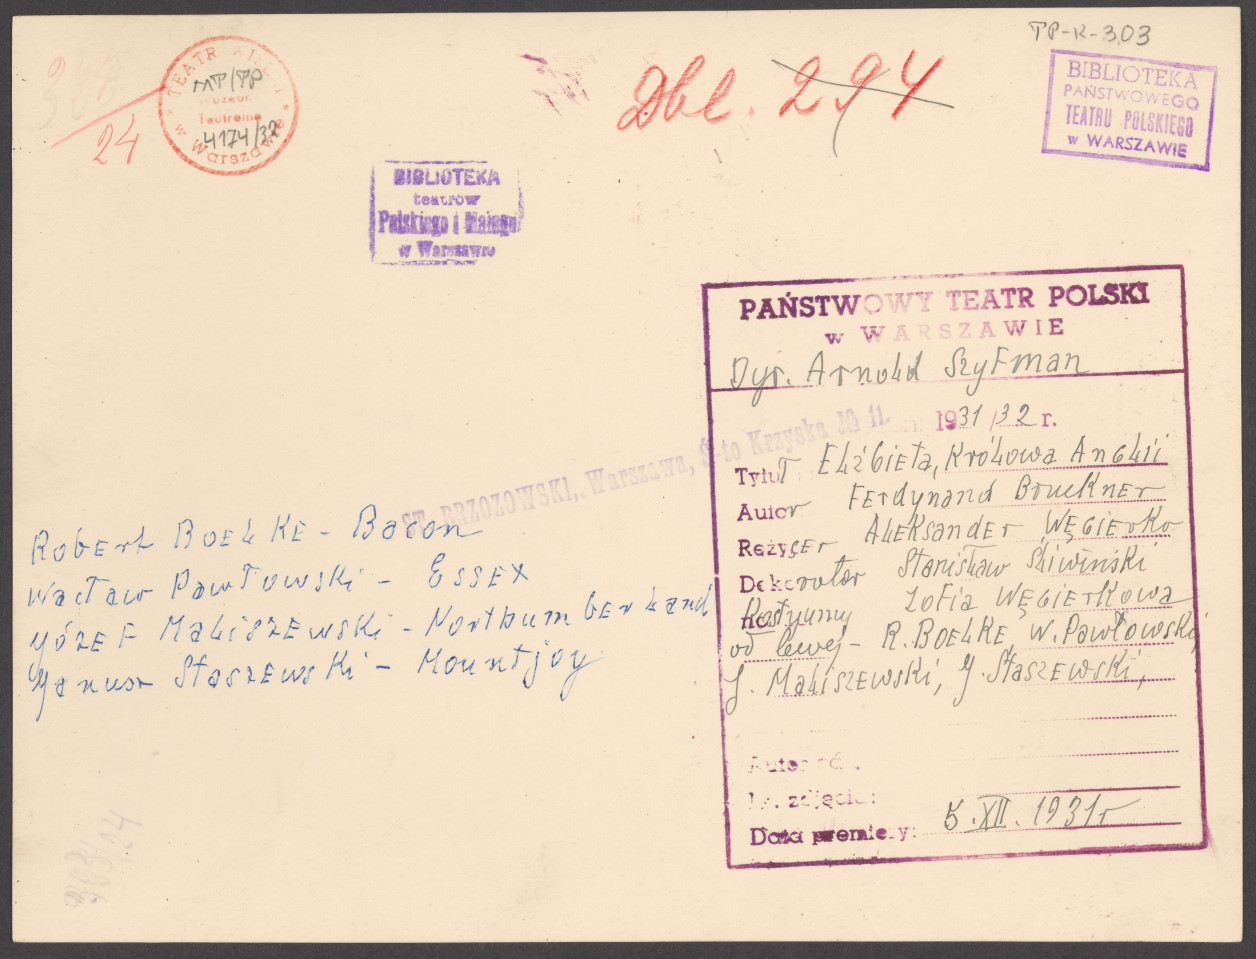 TP-R-303
TEATR WIELKI
MT/TP
Muzeum
Teatralne
4174/32
w Warszawie
24
Dbl. 294
BIBLIOTEKA
PAŃSTWOWEGO
TEATRU POLSKIEGO
w WARSZAWIE
BIBLIOTEKA
teatrów
Polskiego i Małego
w Warszawie
PAŃSTWOWY TEATR POLSKI
w WARSZAWIE
Dyr. Arnold Szyfman
1931/32 r.
Tytuł Elżbieta, Królowa Anglii
Autor Ferdynand Bruckner
Reżyser Aleksander Węgierko
Dekorator Stanisław Śliwiński
Kostyumy Zofia Węgierkowa
od lewej - R. Boelke, W. Pawłowski,
J. Maliszewski, J. Staszewski,
Nr. zdjęcia:
Data premiery: 5.XII.1931r
ST. BRZOZOWSKI, Warszawa, Ś-to Krzyska № 11.
Robert Boelke - Bacon
Wacław Pawłowski - Essex
Józef Maliszewski - Northumberland
Janusz Staszewski - Mountjoy
303/24